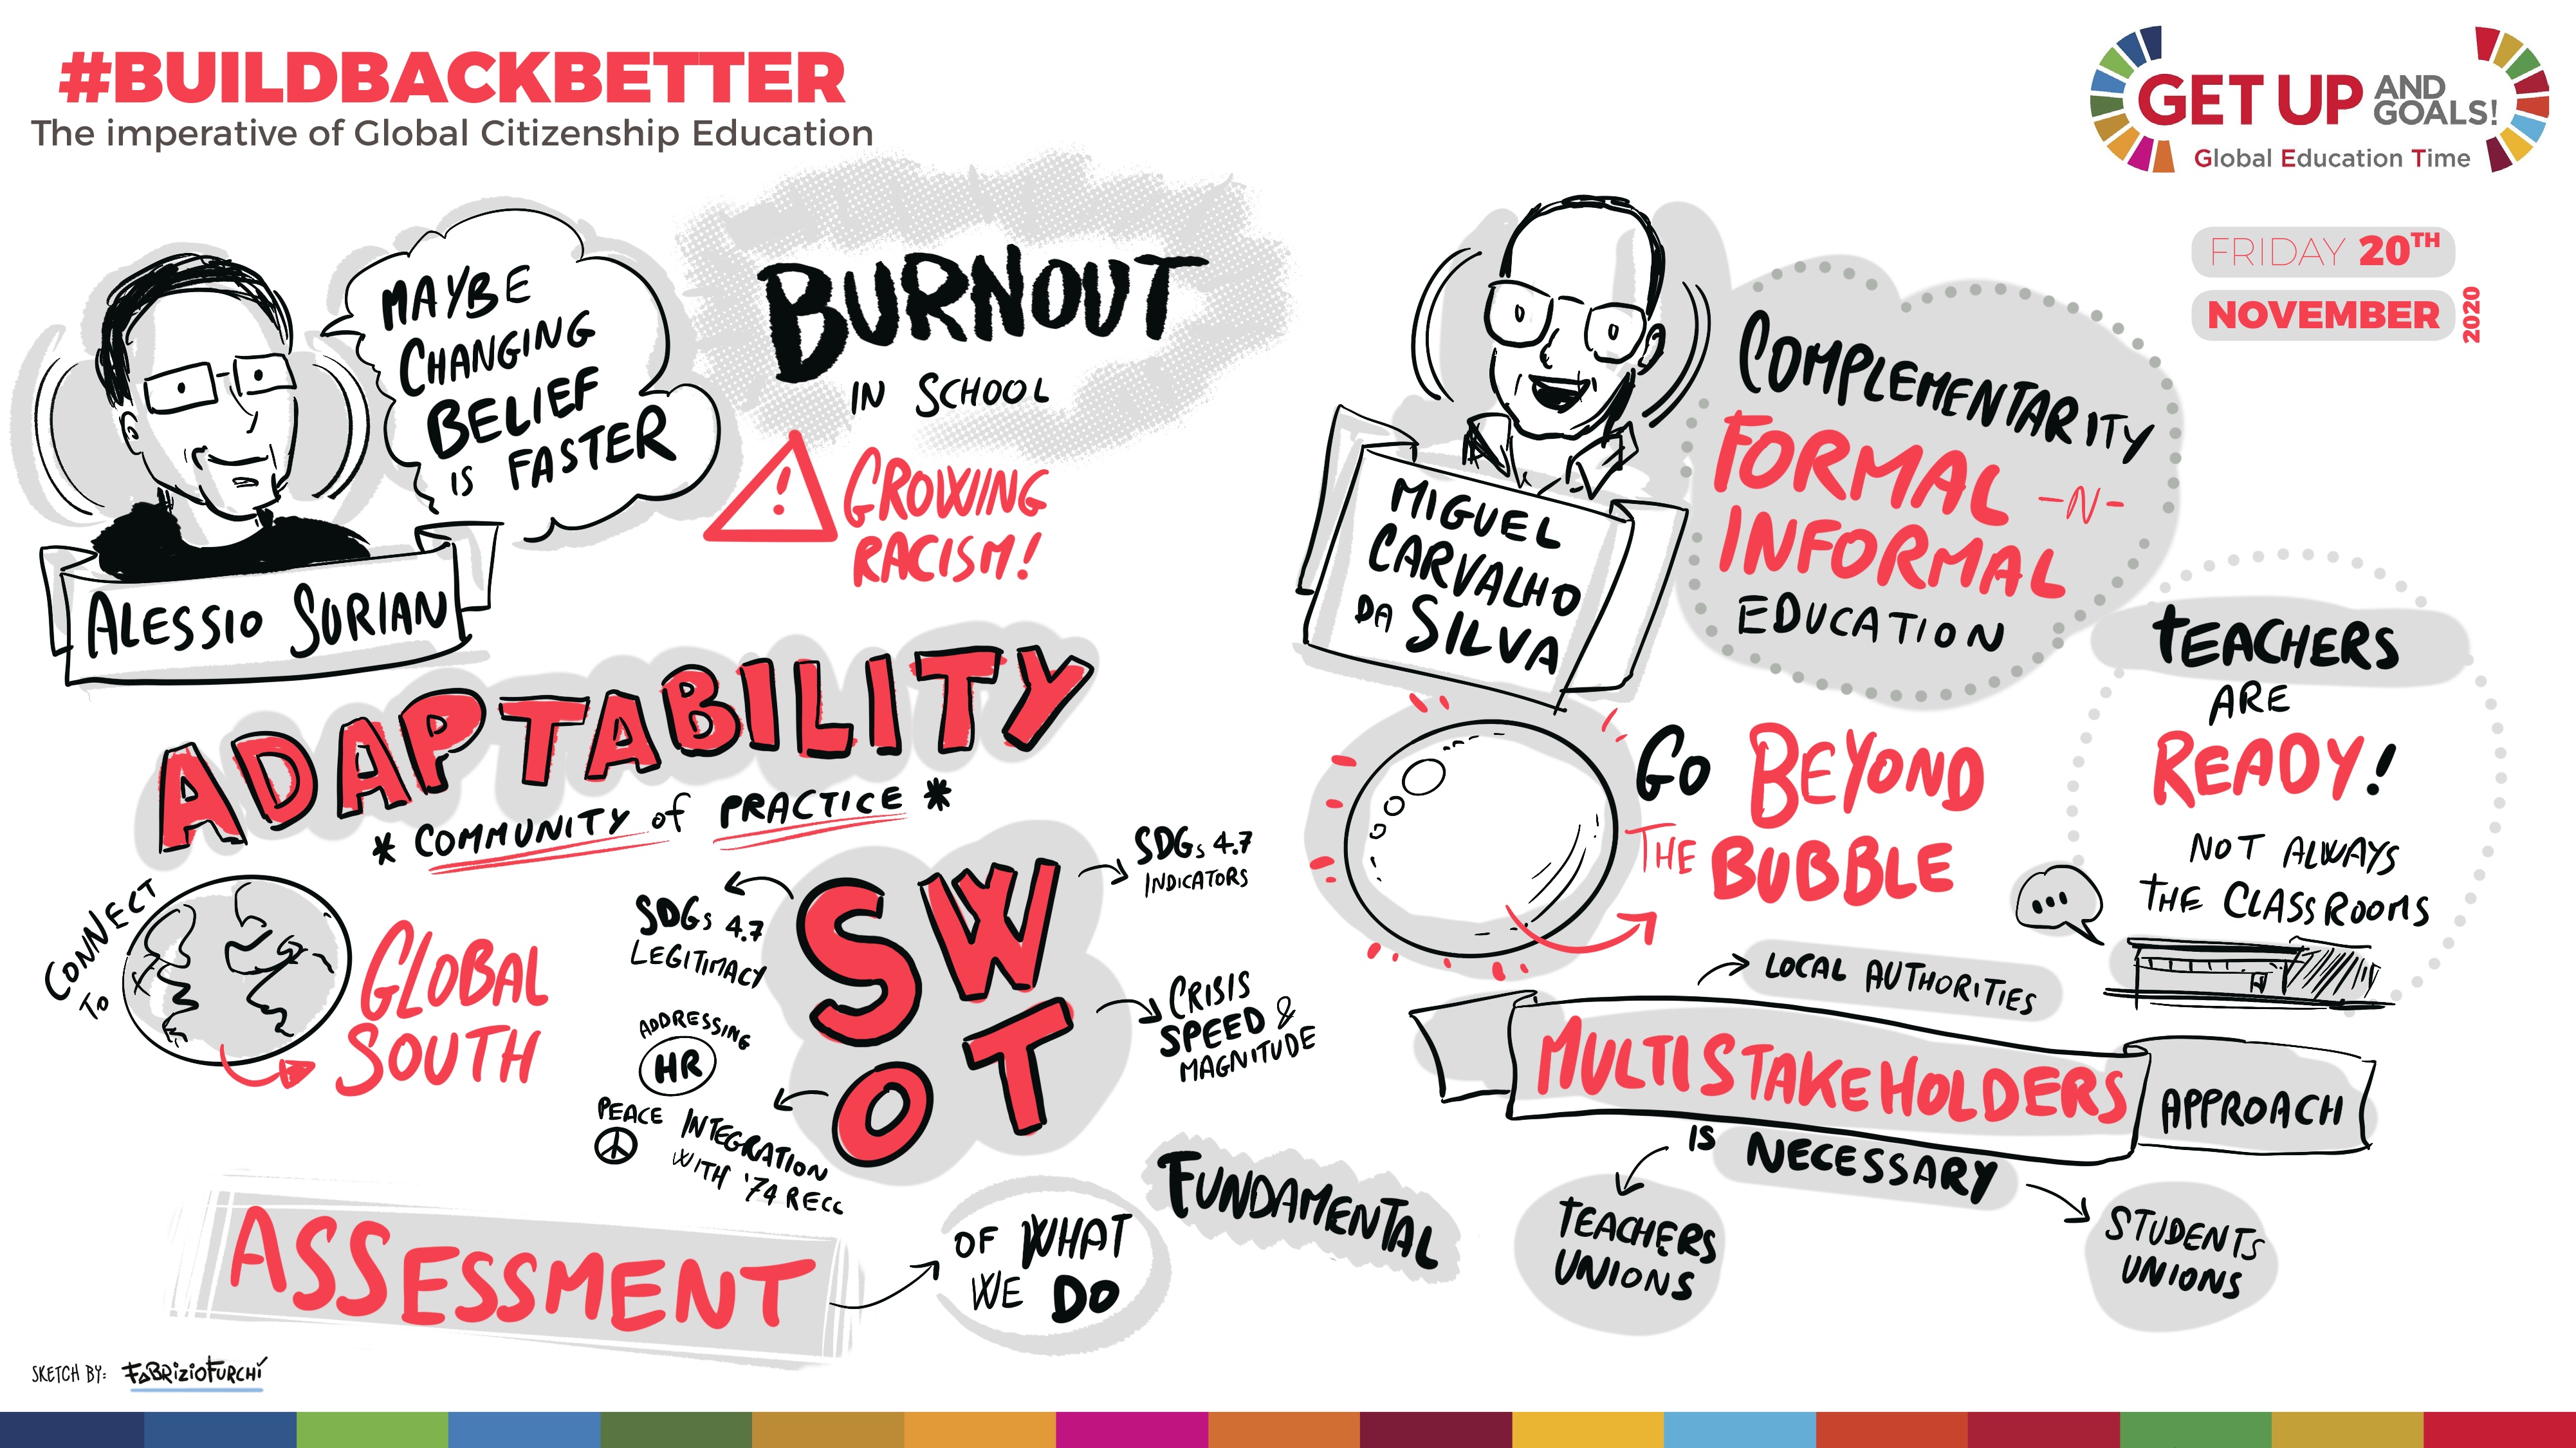 #BUILDBACKBETTER
The imperative of Global Citizenship Education
GET UP AND GOALS!
Global Education Time
FRIDAY 20TH
NOVEMBER 2020
MAYBE
CHANGING
BELIEF
IS FASTER
ALESSIO SURIAN
BURNOUT
IN SCHOOL
! GROWING
RACISM!
ADAPTABILITY
* COMMUNITY of PRACTICE *
CONNECT
TO
GLOBAL
SOUTH
SW
OT
SDGs 4.7
LEGITIMACY
SDGs 4.7
INDICATORS
ADDRESSING
HR
PEACE
INTEGRATION
WITH '74 RECC
CRISIS
SPEED &
MAGNITUDE
ASSESSMENT
OF WHAT
WE DO
FUNDAMENTAL
MIGUEL
CARVALHO
DA SILVA
COMPLEMENTARITY
FORMAL -N-
INFORMAL
EDUCATION
GO BEYOND
THE BUBBLE
TEACHERS
ARE
READY!
NOT ALWAYS
THE CLASSROOMS
...
LOCAL AUTHORITIES
MULTISTAKEHOLDERS APPROACH
IS NECESSARY
TEACHERS
UNIONS
STUDENTS
UNIONS
SKETCH BY: FABRIZIOFURCHÍ